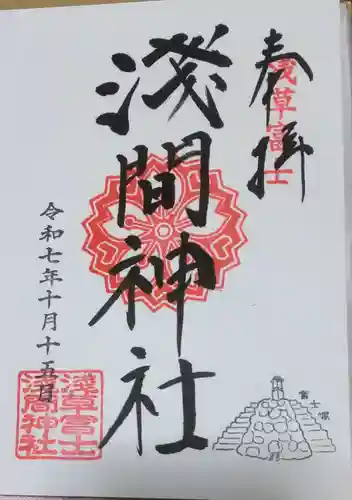 奉拝
浅草富士
淺間神社
令和七年十月十五日
淺草富士
浅間神社
富士塚